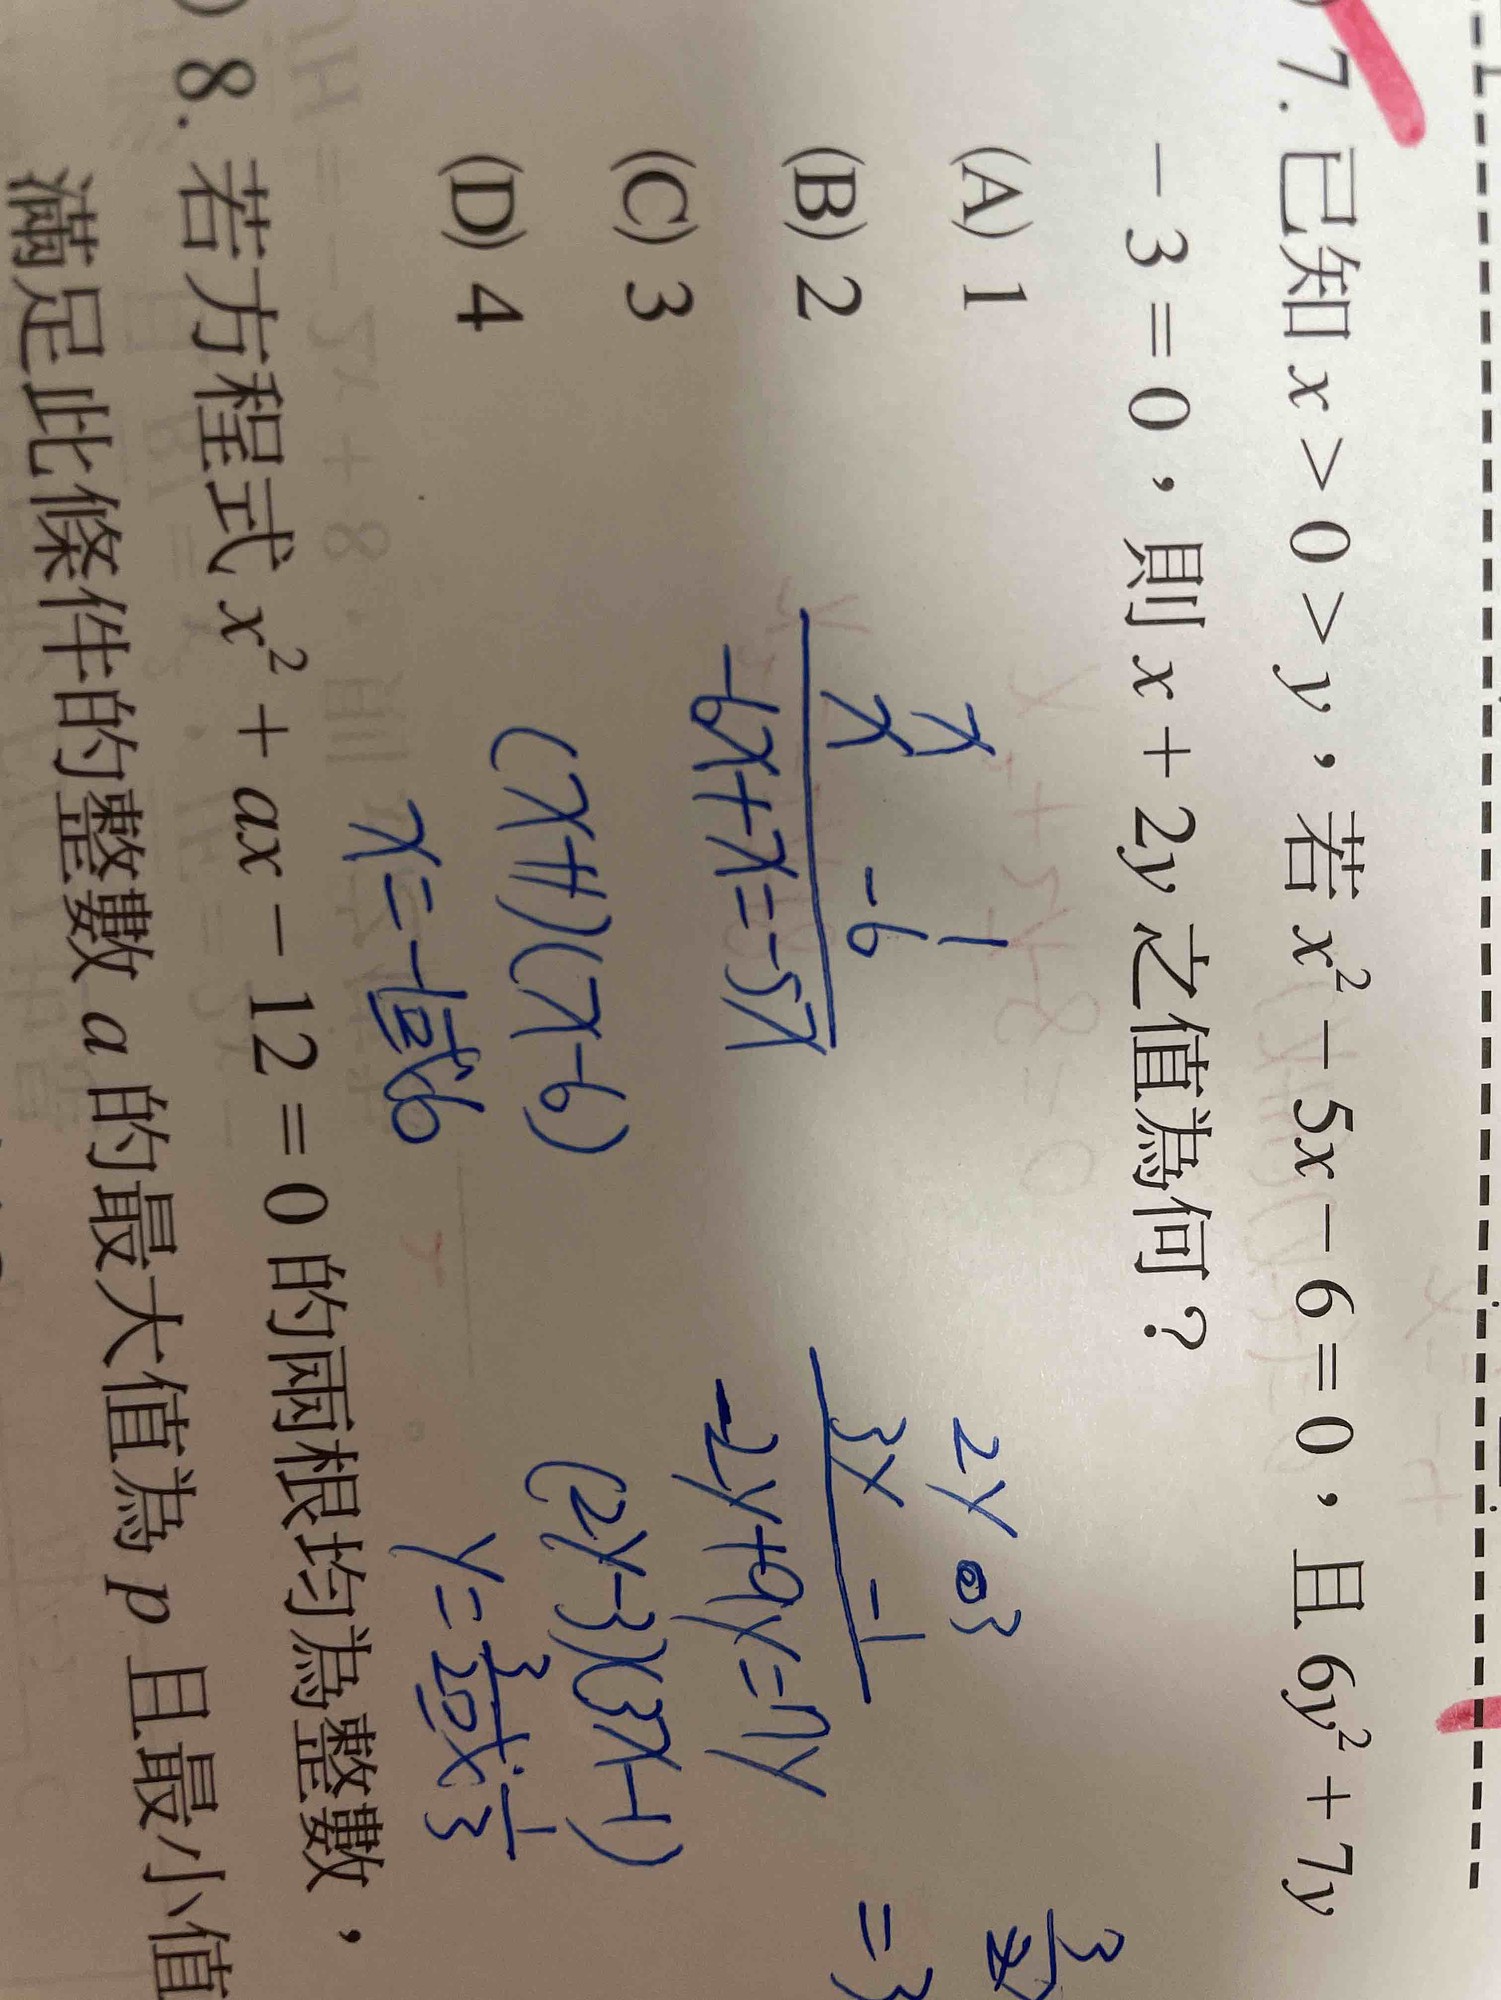 7. 已知 x > 0 > y，若 x² − 5x − 6 = 0，且 6y² + 7y
− 3 = 0，則 x + 2y 之值為何？
(A) 1
(B) 2
(C) 3
(D) 4
x 1
x −6
−6x+x=−5x
(x+1)(x−6)
x=−1或6
2y 3
3y −1
−2y+9y=7y
(2y−3)(3x−1)
y=3/2或1/3
=3
8. 若方程式 x² + ax − 12 = 0 的兩根均為整數，
滿足此條件的整數 a 的最大值為 p 且最小值